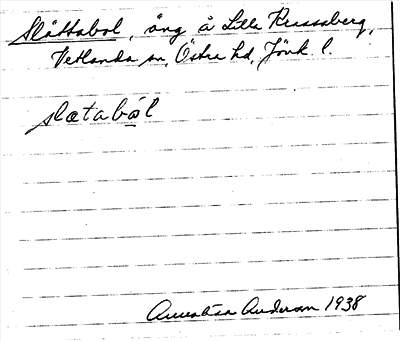 Slåttabol, äng å Lilla Brassaberg,
Vetlanda sn, Östra hd, Jönk. l.
slætabo̤l
Annalisa Anderson 1938